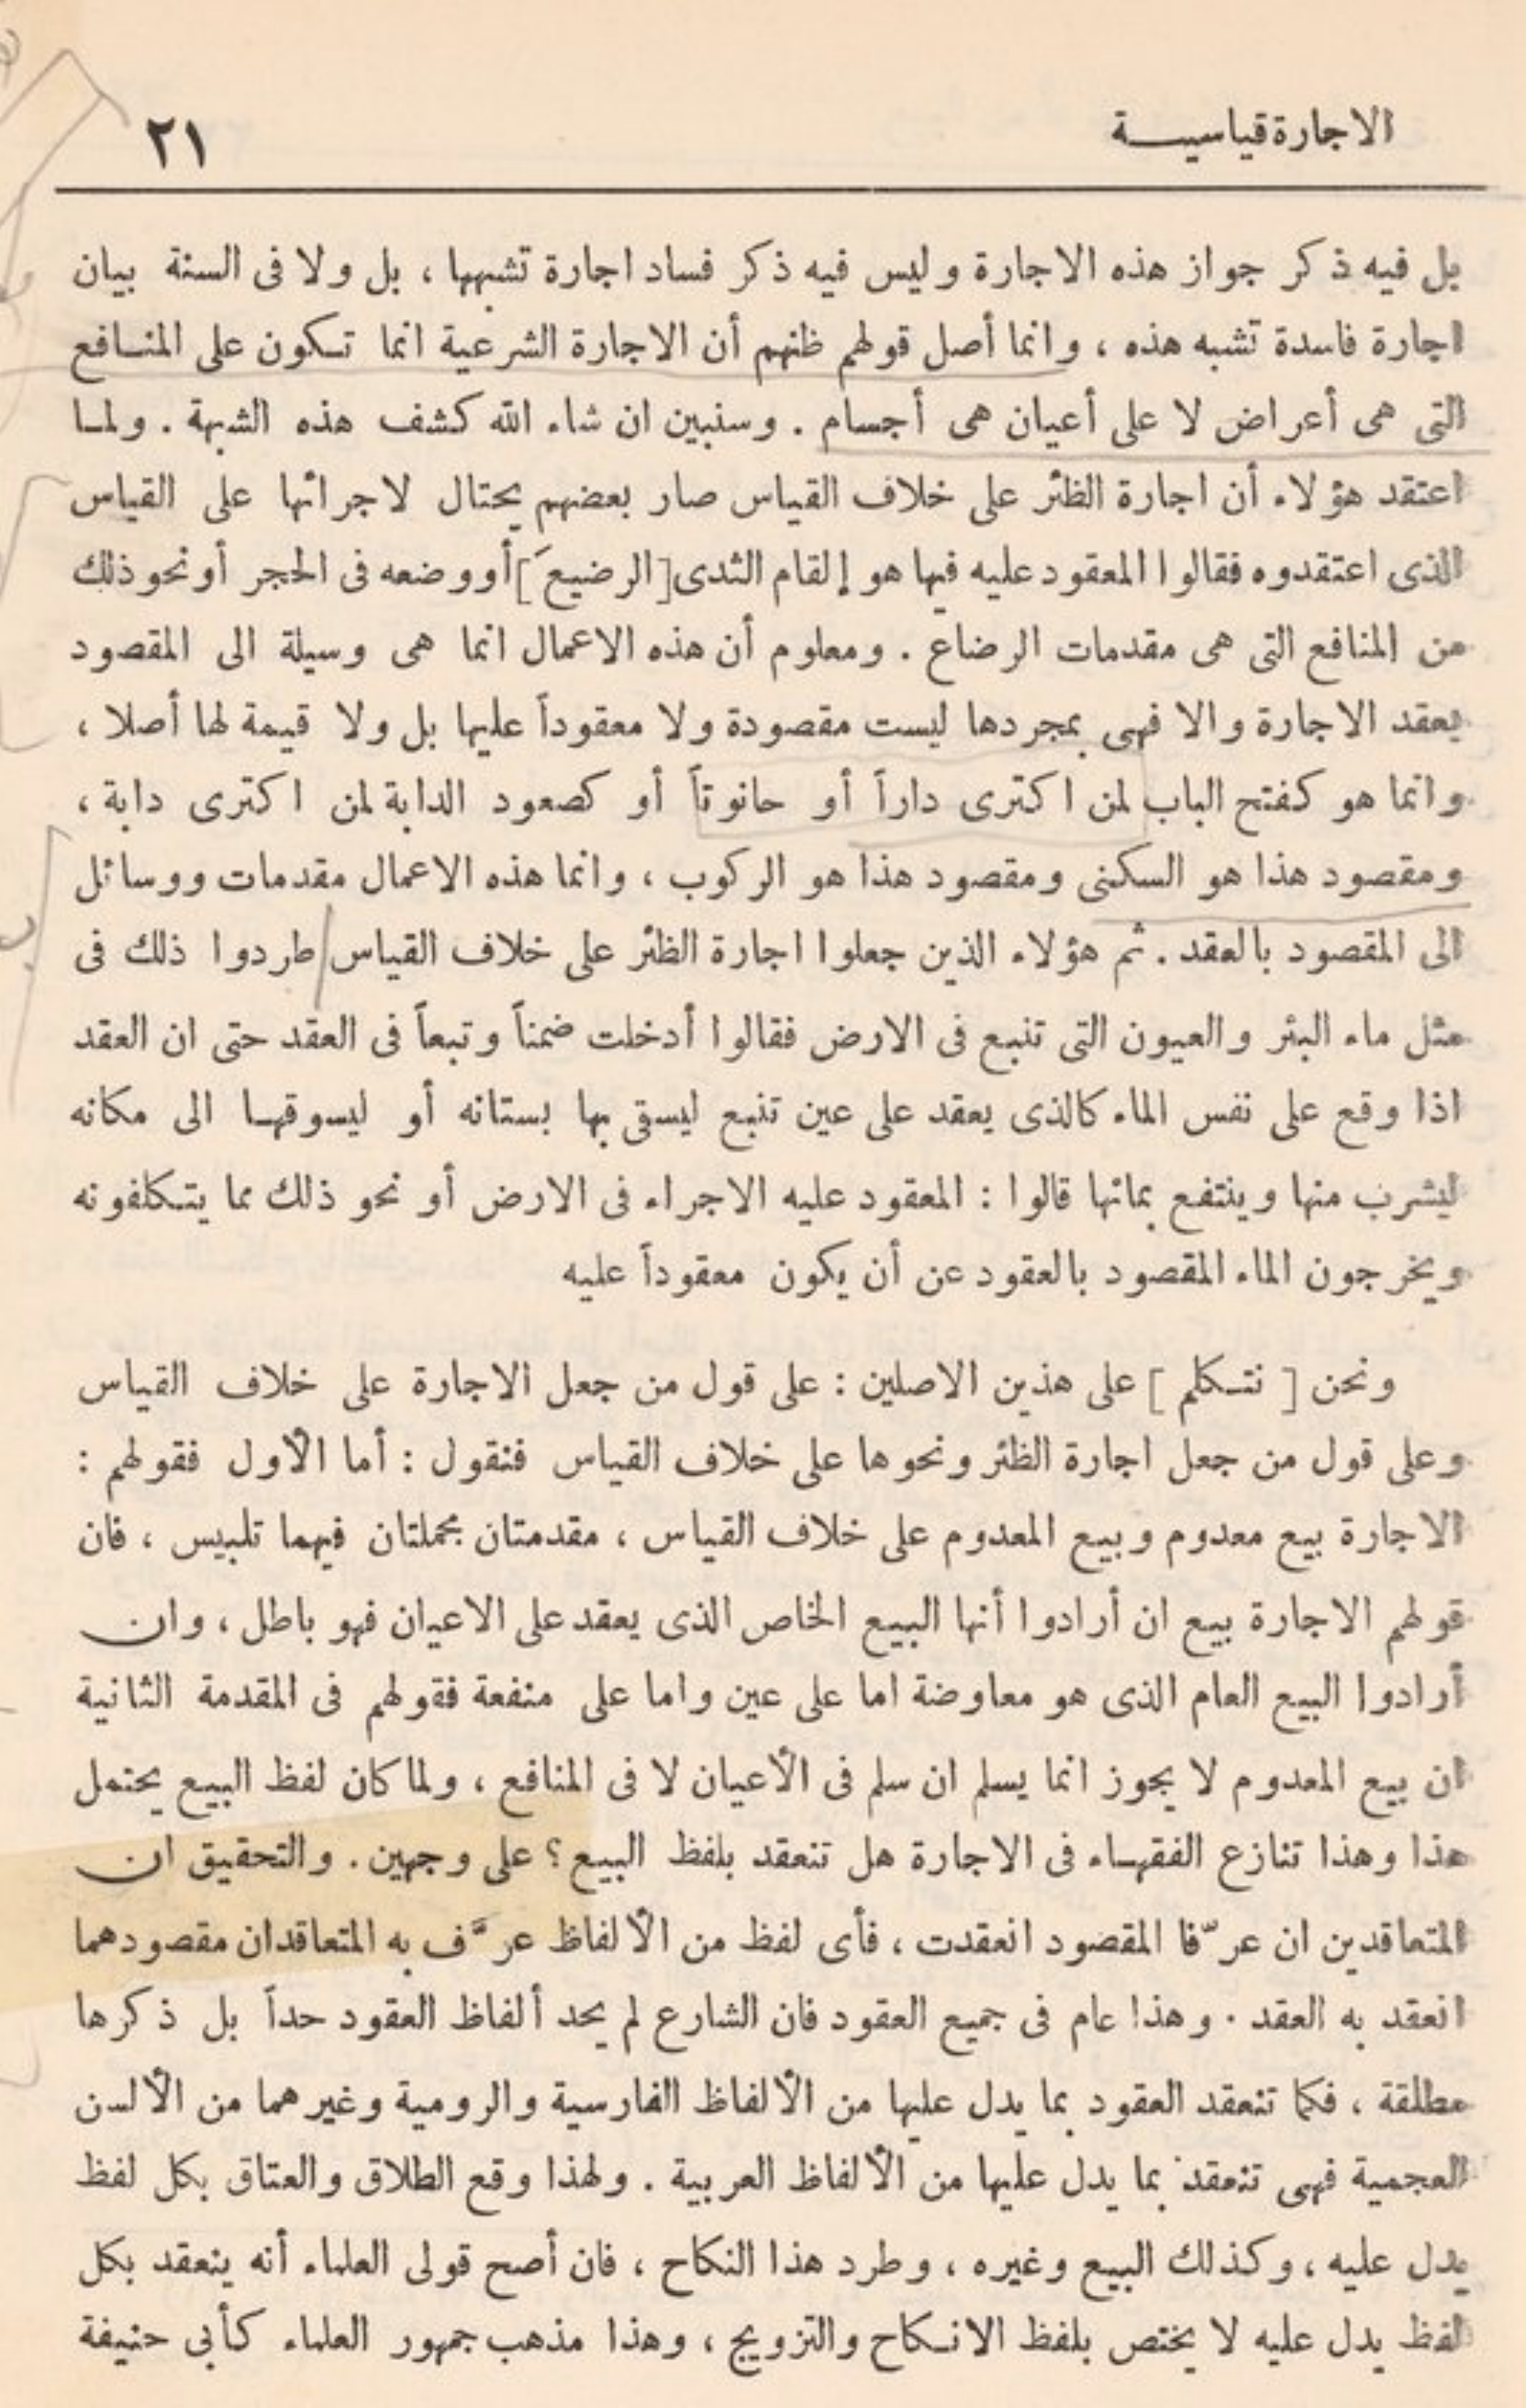 الاجارة قياسيـــة
٢١
بل فيه ذكر جواز هذه الاجارة وليس فيه ذكر فساد اجارة تشبهها ، بل ولا فى السنة بيان
اجارة فاسدة تشبه هذه ، وانما أصل قولهم ظنهم أن الاجارة الشرعية انما تـكون على المنـافع
التى هى أعراض لا على أعيان هى أجسام . وسنبين ان شاء الله كشف هذه الشبهة . ولمـا
اعتقد هؤلاء أن اجارة الظئر على خلاف القياس صار بعضهم يحتال لاجرائها على القياس
الذى اعتقدوه فقالوا المعقود عليه فيها هو إلقام الثدى [الرضيعَ] أو وضعه فى الحجر أو نحو ذلك
من المنافع التى هى مقدمات الرضاع . ومعلوم أن هذه الاعمال انما هى وسيلة الى المقصود
بعقد الاجارة والا فهى بمجردها ليست مقصودة ولا معقوداً عليها بل ولا قيمة لها أصلا ،
وانما هو كفتح الباب لمن اكترى داراً أو حانوتاً أو كصعود الدابة لمن اكترى دابة ،
ومقصود هذا هو السكنى ومقصود هذا هو الركوب ، وانما هذه الاعمال مقدمات ووسائل
الى المقصود بالعقد . ثم هؤلاء الذين جعلوا اجارة الظئر على خلاف القياس طردوا ذلك فى
مثل ماء البئر والعيون التى تنبع فى الارض فقالوا أدخلت ضمناً وتبعاً فى العقد حتى ان العقد
اذا وقع على نفس الماء كالذى يعقد على عين تنبع ليسقى بها بستانه أو ليسوقهـا الى مكانه
ليشرب منها وينتفع بمائها قالوا : المعقود عليه الاجراء فى الارض أو نحو ذلك مما يتـكلفونه
ويخرجون الماء المقصود بالعقود عن أن يكون معقوداً عليه
ونحن [ نتـكلم ] على هذين الاصلين : على قول من جعل الاجارة على خلاف القياس
وعلى قول من جعل اجارة الظئر ونحوها على خلاف القياس فنقول : أما الأول فقولهم :
الاجارة بيع معدوم وبيع المعدوم على خلاف القياس ، مقدمتان مجملتان فيهما تلبيس ، فان
قولهم الاجارة بيع ان أرادوا أنها البيع الخاص الذى يعقد على الاعيان فهو باطل ، وان
أرادوا البيع العام الذى هو معاوضة اما على عين واما على منفعة فقولهم فى المقدمة الثانية
ان بيع المعدوم لا يجوز انما يسلم ان سلم فى الأعيان لا فى المنافع ، ولما كان لفظ البيع يحتمل
هذا وهذا تنازع الفقهـاء فى الاجارة هل تنعقد بلفظ البيع ؟ على وجهين . والتحقيق ان
المتعاقدين ان عرّفا المقصود انعقدت ، فأى لفظ من الألفاظ عرَّف به المتعاقدان مقصودهما
انعقد به العقد . وهذا عام فى جميع العقود فان الشارع لم يحد ألفاظ العقود حداً بل ذكرها
مطلقة ، فكما تنعقد العقود بما يدل عليها من الألفاظ الفارسية والرومية وغيرهما من الألسن
العجمية فهى تنعقد بما يدل عليها من الألفاظ العربية . ولهذا وقع الطلاق والعتاق بكل لفظ
يدل عليه ، وكذلك البيع وغيره ، وطرد هذا النكاح ، فان أصح قولى العلماء أنه ينعقد بكل
لفظ يدل عليه لا يختص بلفظ الانـكاح والتزويج ، وهذا مذهب جمهور العلماء كأبى حنيفة